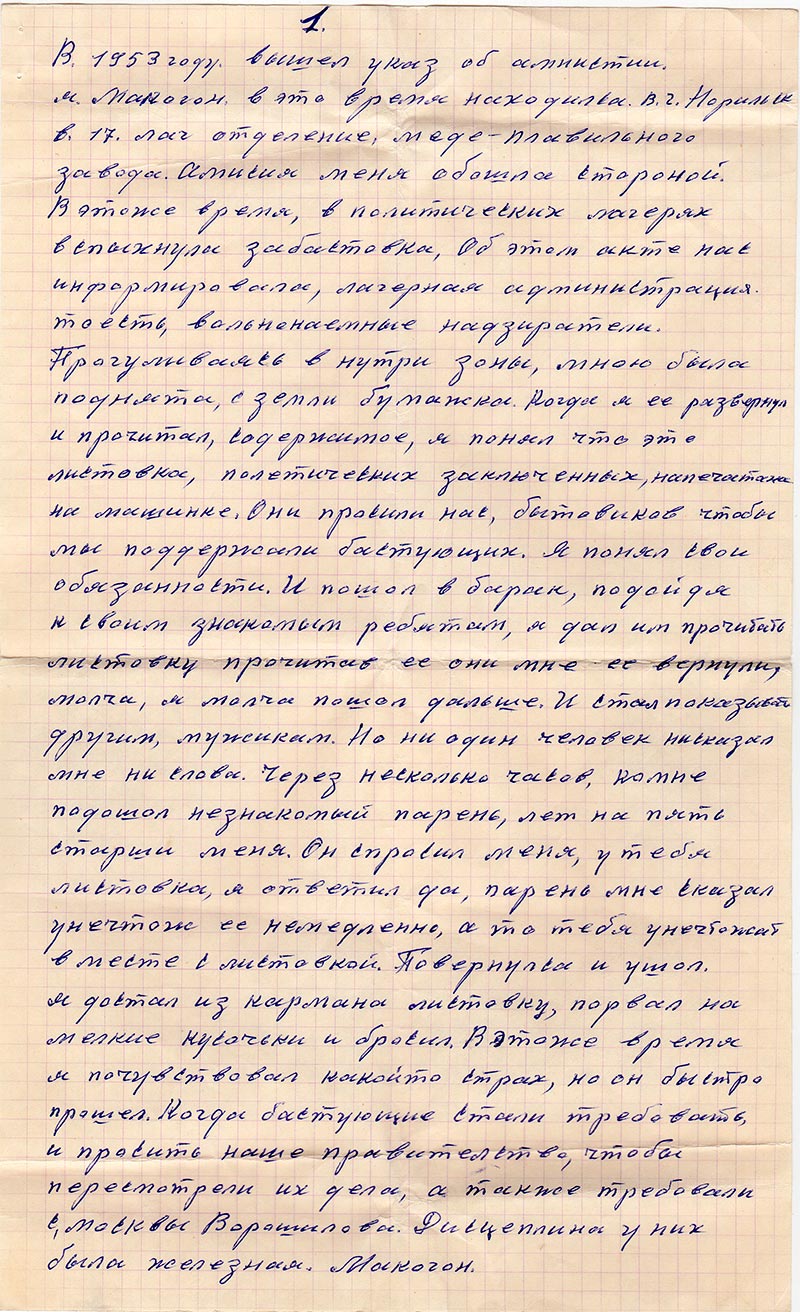 1.
В. 1953 году. вышел указ об амнистии.
я. Макогон. в это время находился. в.г. Норильк
в. 17. лаг отделение, меде-плавильного
завода. Амисия меня обошла стороной.
В этоже время, в политических лагерях
вспыхнула забастовка, Об этом акте нас
информировала, лагерная администрация.
тоесть, вольнонаемные надзиратели.
Прогуливаясь в нутри зоны, мною была
поднята, с земли бумажка. Когда я ее развернул
и прочитал, содержимое, я понял что это
листовка, полетических заключенных, напечатана
на машинке. Они просили нас, бытовиков чтобы
мы поддержали бастующих. Я понял свои
обязанности. И пошол в барак, подойдя
к своим знакомым ребятам, я дал им прочитать
листовку прочитав ее они мне ее вернули,
молча, я молча пошол дальше. И стал показывать
другим, мужикам. Но ни один человек нисказал
мне ни слова. Через несколько часов, комне
подошол незнакомый парень, лет на пять
старши меня. Он спросил меня, у тебя
листовка, я ответил да, парень мне сказал
унечтож ее немедленно, а то тебя унечтожат
в месте с листовкой. Повернулса и ушол.
я достал из кармана листовку, порвал на
мелкие кусочьки и бросил. В этоже время
я почувствовал какойто страх, но он быстро
прошел. Когда бастующие стали требовать,
и просить наше правительство, чтобы
пересмотрели их дела, а также требовали
с, москвы Ворошилова. Дисцеплина у них
была железная. Макогон.